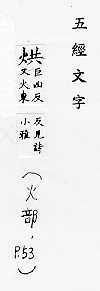 五經文字
烘巨凶反又火東反見詩小雅(火部,P.53)